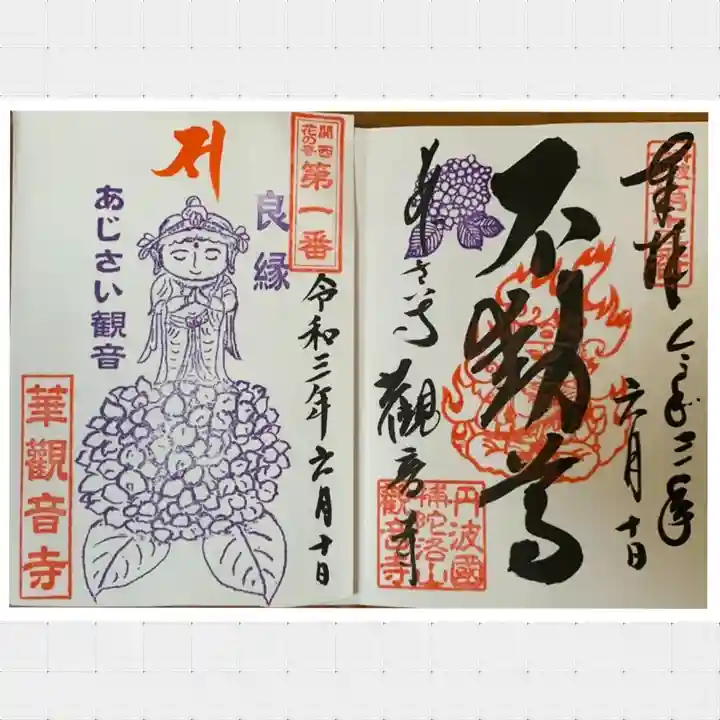 関西
花の寺
第一番
良縁
あじさい観音
華觀音寺
令和三年六月十日
奉拝
令和三年
六月十日
不動尊
あじさい寺
觀音寺
丹波國
補陀洛山
觀音寺